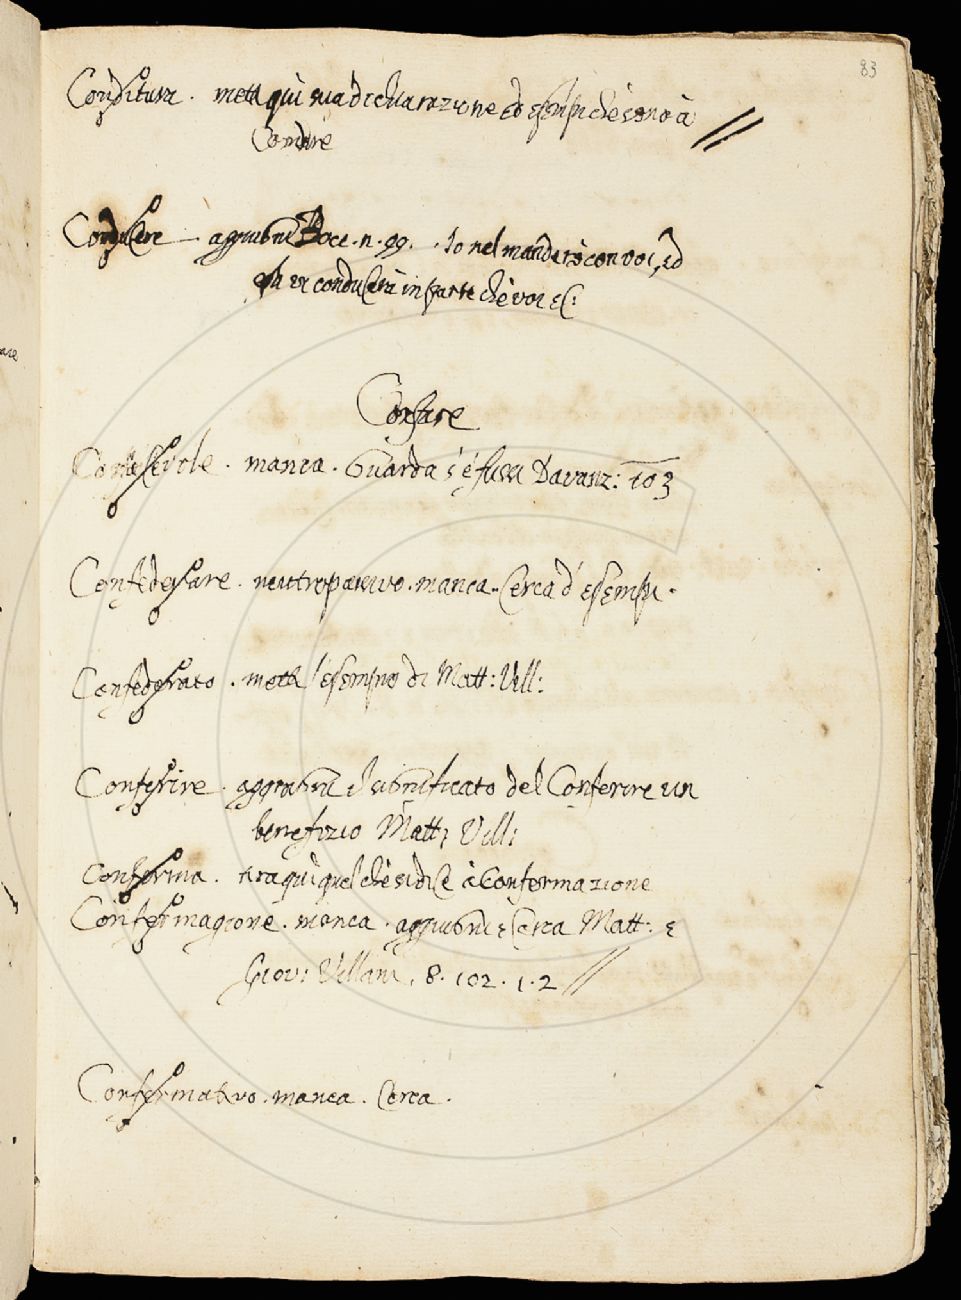 83
Conditura. metti qui sua dichiarazione ed esempi che sono à
Condire
Conducere — aggiugni Bocc. n. 99. Io nel manderò con voi, ed
egli vi conducerà in parte che voi &c:
Confare
Confacevole. manca. Guarda s'è fusse Davanz: 103
Confederare. neutro passivo. manca. Cerca d'esempi.
Confederato. metti l'esempio di Matt: Vill:
Conferire. aggiugni il significato del Conferire un
benefizio Matt: Vill:
Conferma. tira qui quel che si dice à Confermazione
Confermagione. manca. aggiugni e Cerca Matt: e
Giov: Villani. 8. 102. 1. 2 //
Confermativo. manca. Cerca.